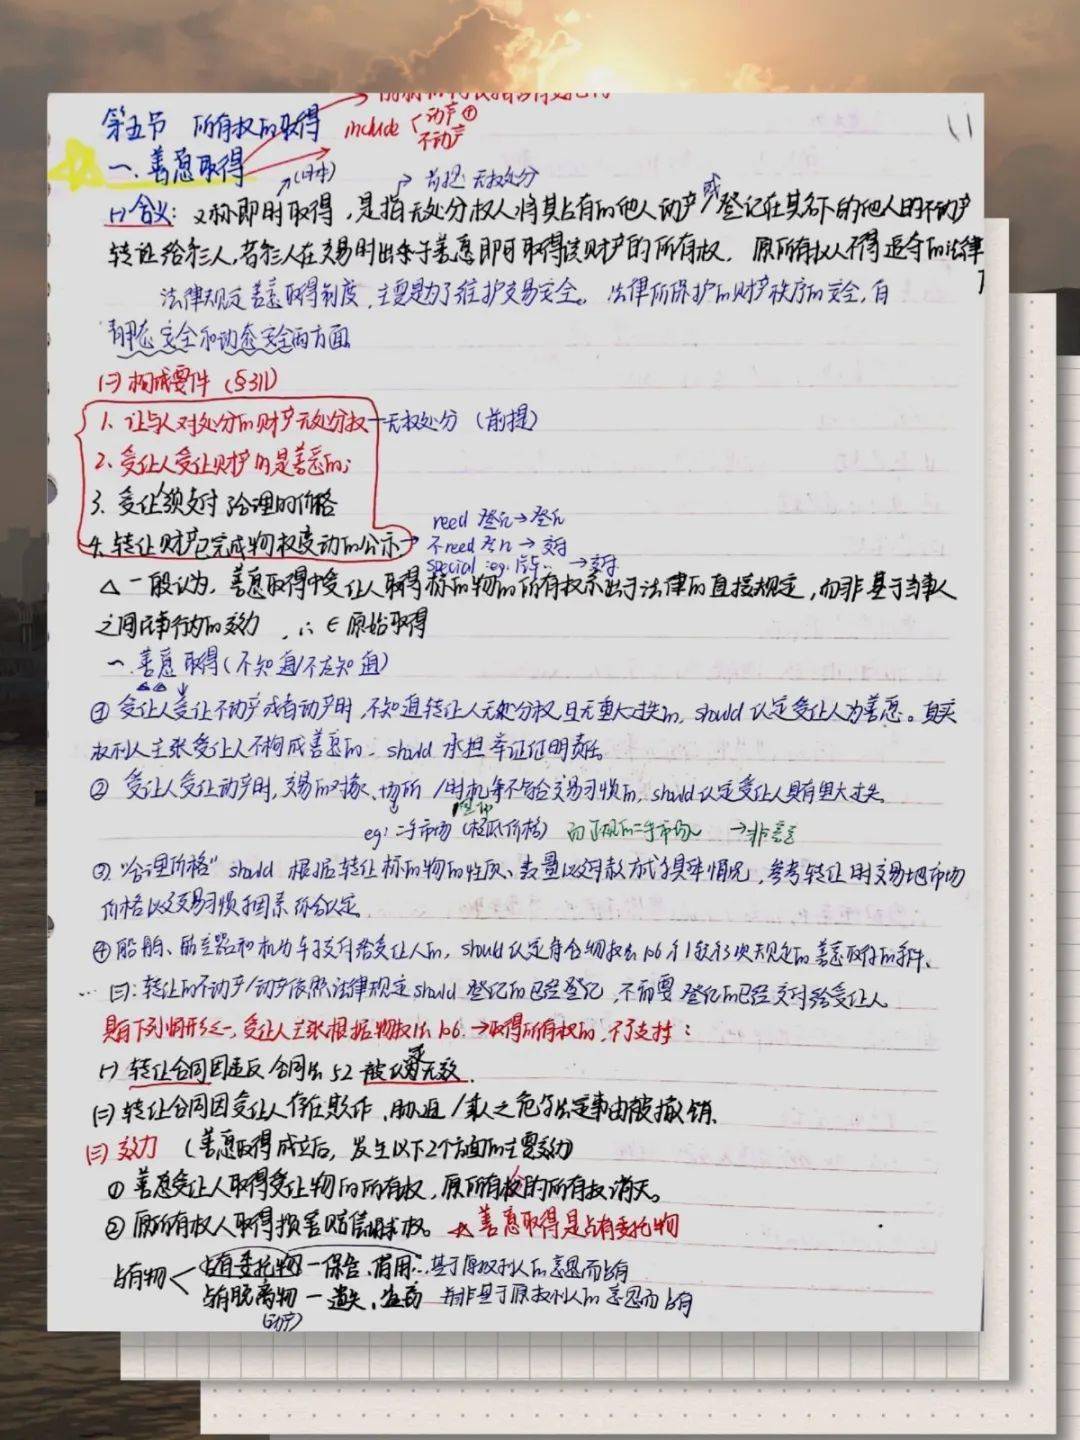 第五节 所有权的取得 include 动产①
不动产
11
一、善意取得 (日本) 前提: 无权处分
(一)含义: 又称即时取得, 是指无处分权人将其占有的他人动产或登记在其名下的他人的不动产
转让给第三人, 若第三人在交易时出于善意即可取得该财产的所有权, 原所有权人不得追夺的法律
法律规定善意取得制度, 主要是为了维护交易安全。法律所保护的财产秩序的安全, 有
静态安全和动态安全两方面
(二)构成要件 (§311)
1、让与人对处分的财产无处分权 —无权处分 (前提)
2、受让人受让财产时是善意的;
3、受让人须支付了合理的价格
need 登记→登记
4、转让财产已完成物权变动的公示→ 不need登记→交付
special: eg: 汽车… →交付
△一般认为, 善意取得中受让人取得标的物的所有权系出于法律的直接规定, 而非基于当事人
之间法律行为的效力, ∴∈原始取得
一、善意取得(不知道/不应知道)
① 受让人受让不动产或者动产时, 不知道转让人无处分权, 且无重大过失的, should 认定受让人为善意。真实
权利人主张受让人不构成善意的, should 承担举证证明责任
② 受让人受让动产时, 交易的对象、场所/时机等不符合交易习惯的, should认定受让人具有重大过失.
eg: 二手市场 (极低价格) 而正规的二手市场 →非善意
③ "合理价格" should 根据转让标的物的性质、数量以及付款方式等具体情况, 参考转让时交易地市场
价格以及交易习惯等因素综合认定.
④ 船舶、航空器和机动车等交付给受让人的, should认定符合物权法106条1款第3项规定的善意取得的条件.
… 三: 转让的不动产/动产依照法律规定should 登记的已经登记, 不需要登记的已经交付给受让人
具有下列情形之一, 受让人主张根据物权法106.→取得所有权的, 不予支持:
(一) 转让合同因违反合同法52被认定无效.
(二) 转让合同因受让人存在欺诈、胁迫/乘人之危等法定事由被撤销.
(三) 效力 (善意取得成立后, 发生以下2个方面的主要效力)
① 善意受让人取得受让物的所有权, 原所有权的所有权消灭。
② 原所有权人取得损害赔偿请求权。 善意取得是占有委托物
占有物 占有委托物—保管、借用…基于原权利人的意思而占有
占有脱离物—遗失、盗窃 并非基于原权利人的意思而占有
(动产)